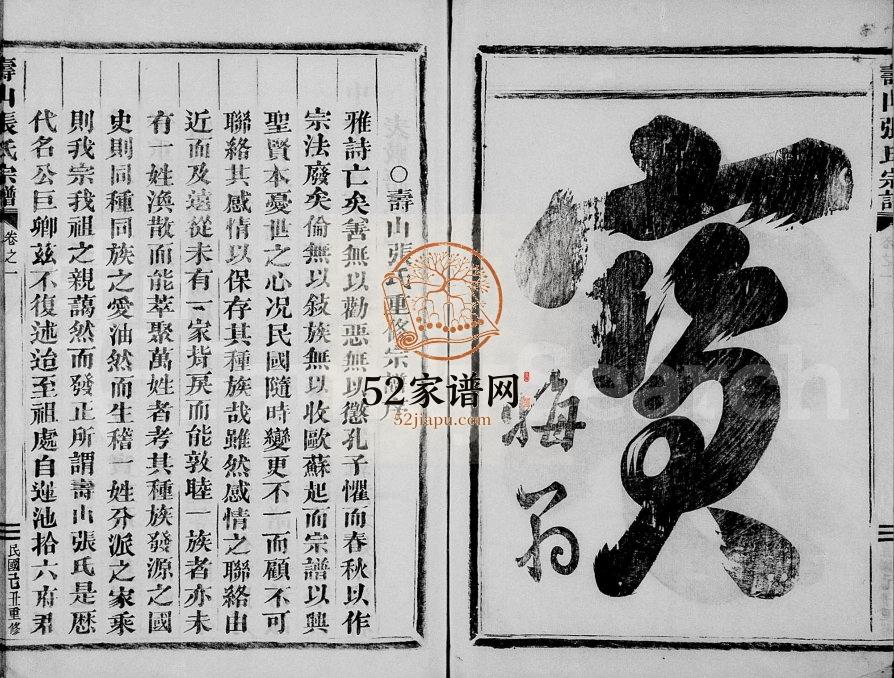 壽山張氏宗譜
寳
晦翁
〇壽山張氏重修宗譜序
雅詩亡矣善無以勸惡無以懲孔子懼而春秋以作
宗法廢矣倫無以敍族無以收歐蘇起而宗譜以興
聖賢本憂世之心况民國隨時變更不一而顧不可
聯絡其感情以保存其種族哉雖然感情之聯絡由
近而及遠從未有一家背戾而能敦睦一族者亦未
有一姓渙散而能萃聚萬姓者考其種族發源之國
史則同種同族之愛油然而生稽一姓分派之家乘
則我宗我祖之親藹然而發正所謂壽山張氏是歷
代名公巨卿兹不復述迨至祖處自蓮池拾六府君
壽山張氏宗譜
卷之一
民國己丑重修
52家谱网
52jiapu.com